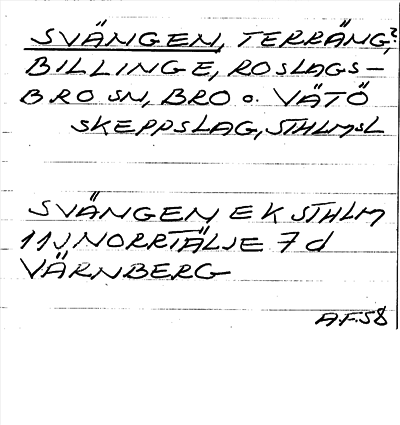 SVÄNGEN, TERRÄNG?,
BILLINGE, ROSLAGS-
BRO SN, BRO o. VÄTÖ
SKEPPSLAG, STHLMSL
SVÄNGEN EK STHLM
11J NORRTÄLJE 7 d
VÄRNBERG
A.F.58